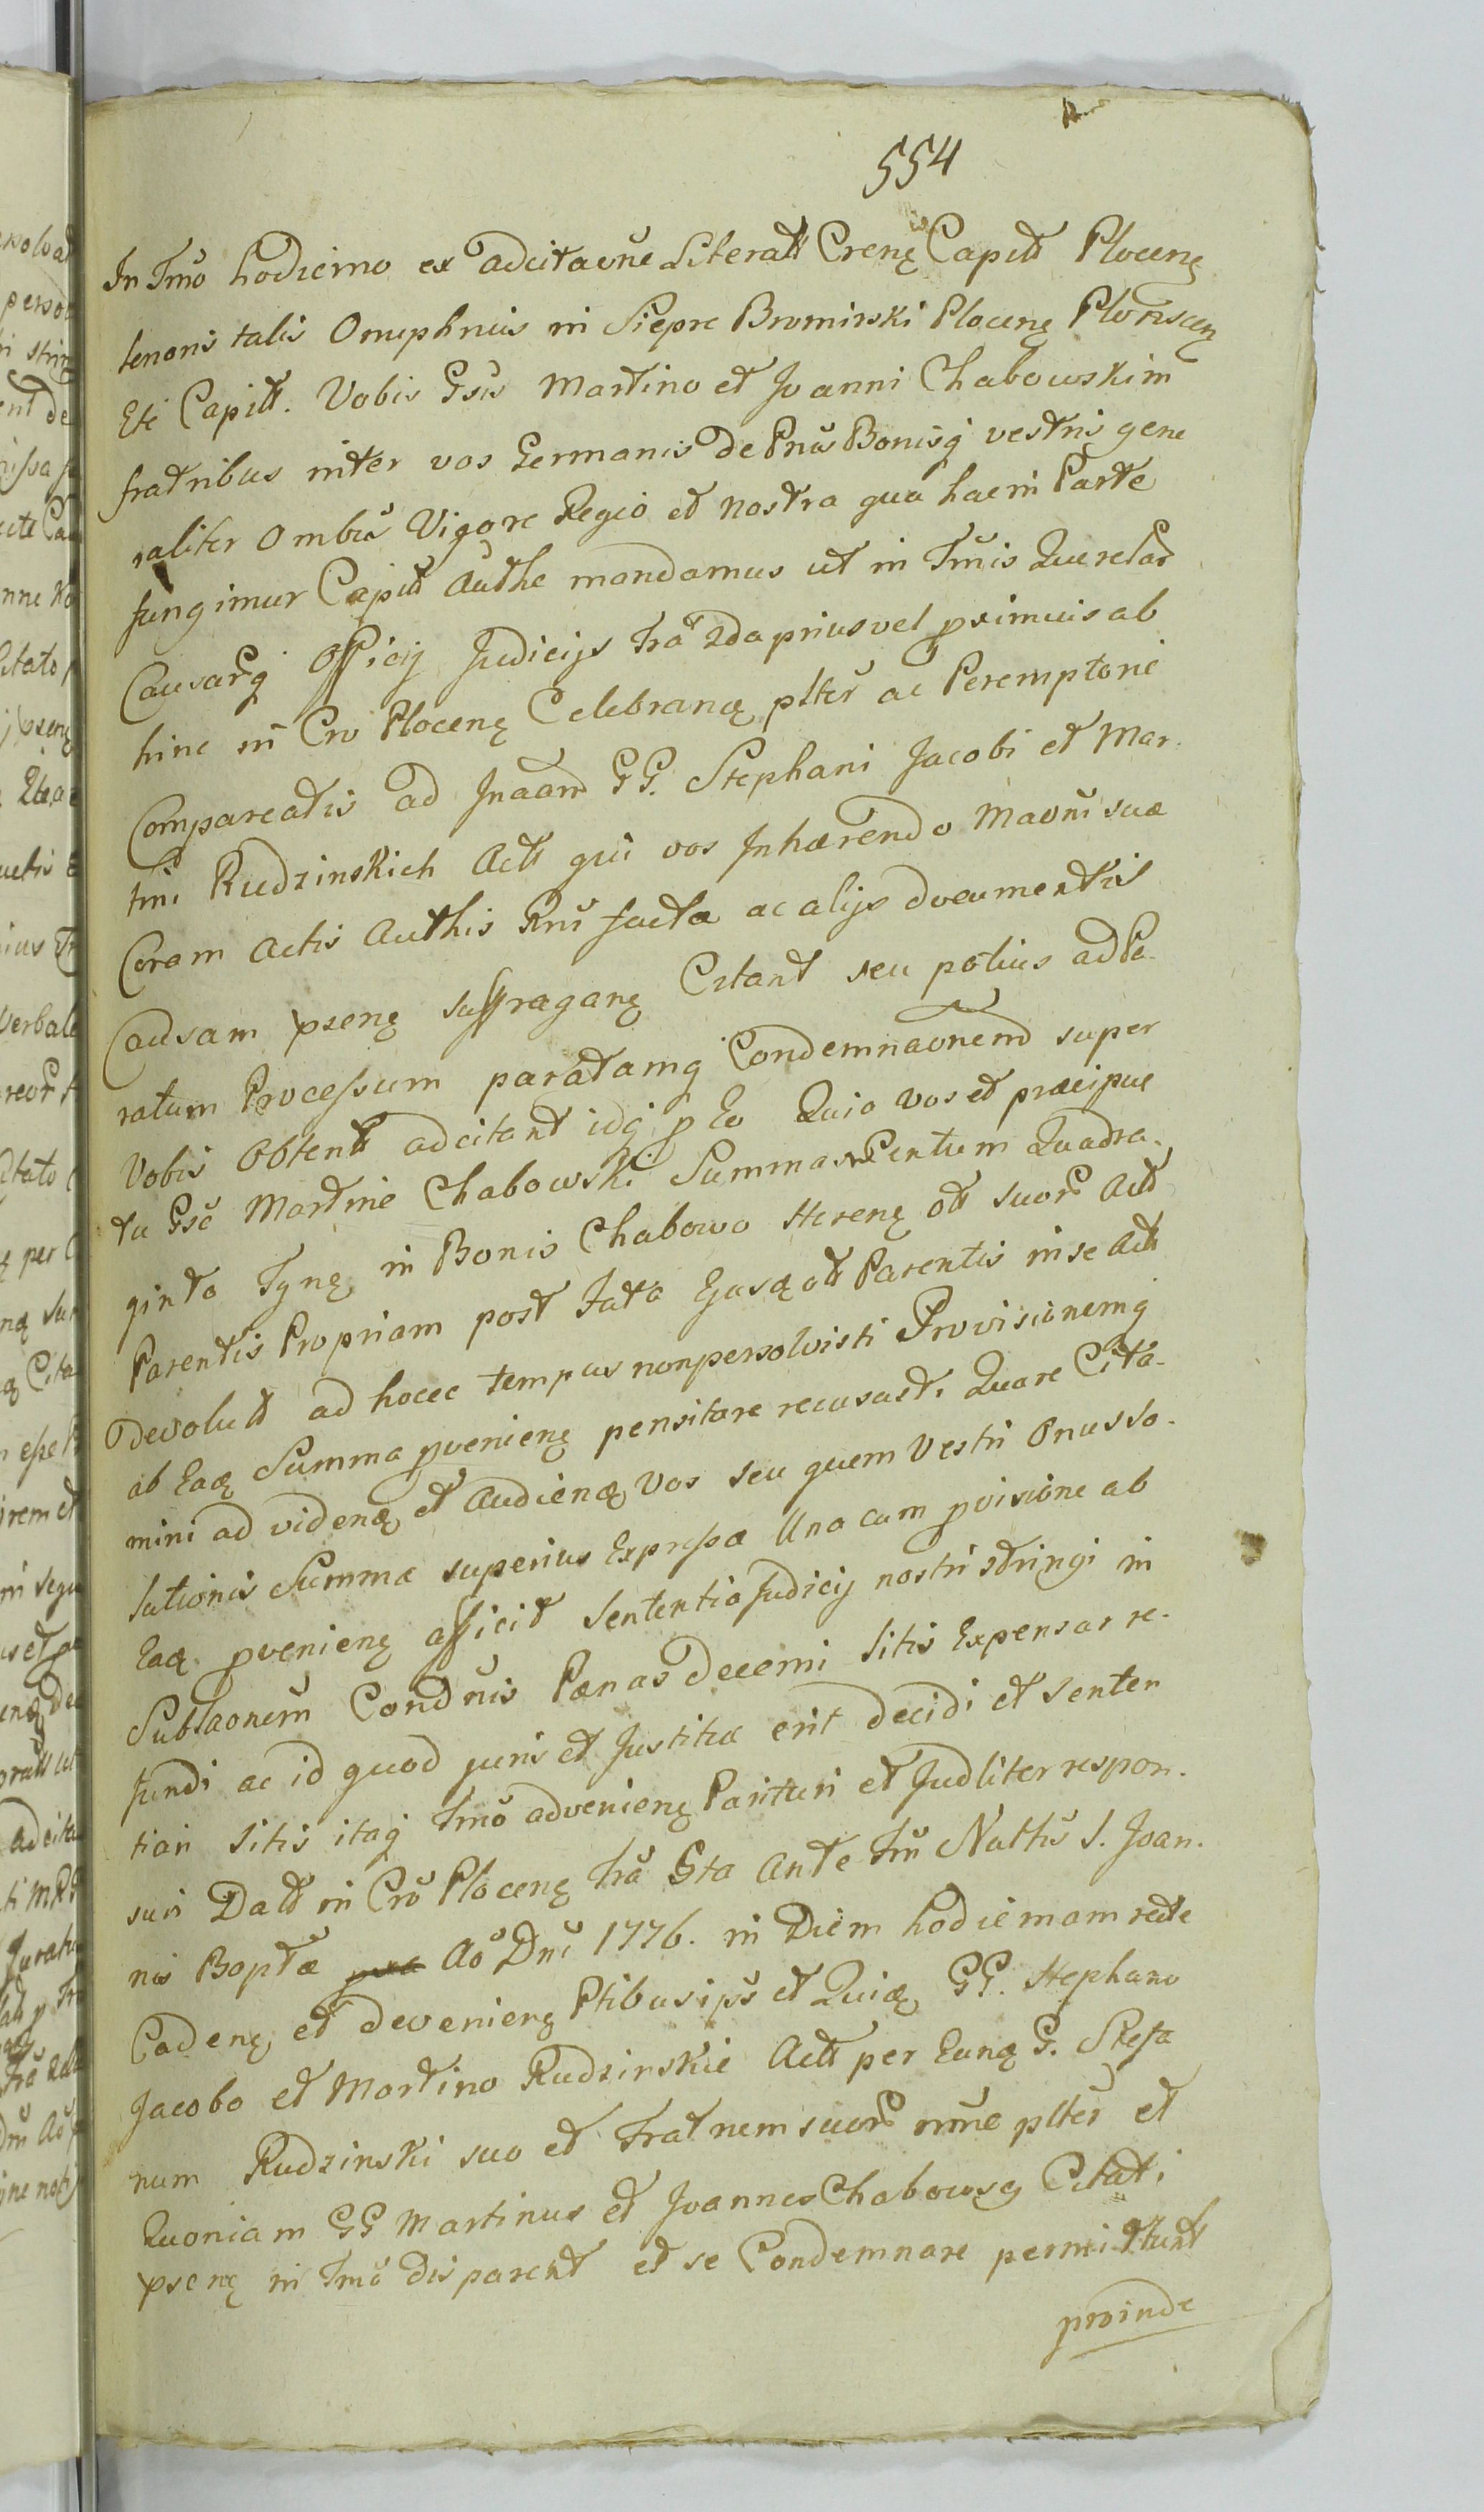 554
In Tmo hodierno ex adcitaone Literatt Crenę Capitt Plocenę
tenoris talis Onuphrius in Siepre Bromirski Plocenę Plonscenę
Etc Capitt. Vobis Gsis Martino et Joanni Chabowskim
fratribus inter vos Germanis de Pnis Bonisq vestris gene
raliter Ombus Vigore Regio et nostra qua hac in Parte
fungimur Capitt Authe mandamus ut in Tmis Querelar
Causarq Officij Judicijs Fra 2da prius vel proximius ab
hinc in Cro Plocenę Celebranę plter ac Peremptorie
Compareatis ad Jnaam GG. Stephani Jacobi et Mar-
tini Rudzinskich Actt qui vos Jnhærendo Maoni suæ
Coram Actis Authis Rni factæ ac alijs documentis
Causam pñsenę suffraganę Citant seu potius ad Pa-
ratum Processum paratamq Condemnaonem super
Vobis Obtentt adcitant idq p Eo Quia vos et præcipue
tu Gse Martine Chabowski Summam Centum Quadra-
ginta Tynę in Bonis Chabowo Hærenę ott suor Actt
Parentis Propriam post Fata Ejusdę ott Parentis in se Actt
devolutt ad hocce tempus non persolvisti Provisionemq
ab Eadę Summa provenienę pensitare recusasti Quare Cita-
mini ad videndę et Audiendę Vos seu quem Vestri Onus so-
lutionis Summæ superius Expressæ Una cum provisione ab
Eadę provenienę afficit Sententia Judicij nostri stringi in
Subsaonem Condnis Pænas decerni litis Expensas re-
fundi ac id quod juris et Justitiæ erit decidi et senten
tiari Sitis itaq Tmo advenienę Parituri et Judliter respon-
suri Datt in Cro Plocenę Fra 6ta Ante Fm Nattis S. Joan-
nis Baptæ Ao Dni 1776. in Diem hodiernam recte
Cadenę et devenienę Ptibus ipis et Quidę GG. Stephano
Jacobo et Martino Rudzinskie Actt per Eundę G. Stefa
num Rudzinski suo et Fratrem suor nmne plter et
Quoniam GG Martinus et Joannes Chabowscy Citati
pñsenę in Tmo disparent et se Condemnare permittunt
proinde